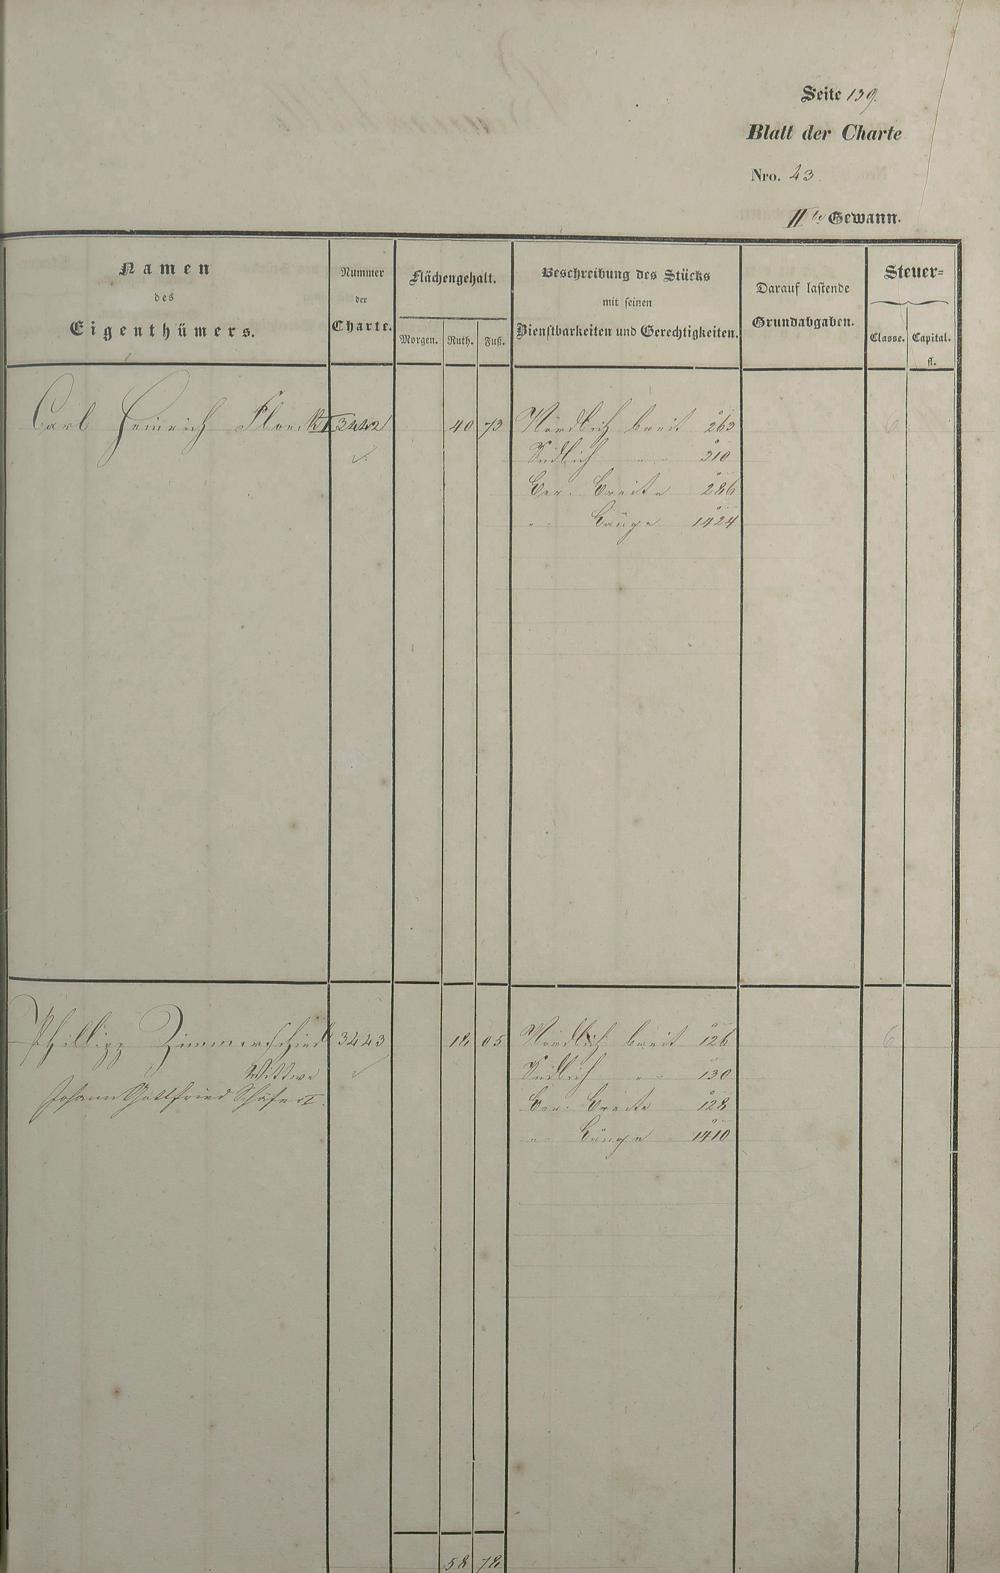 Seite 139.
Blatt der Charte
Nro. 43
II te Gewann.
Namen des Eigenthümers.
Nummer der Charte.
Flächengehalt.
Morgen. Ruth. Fuß.
Beschreibung des Stücks mit seinen Dienstbarkeiten und Gerechtigkeiten.
Darauf lastende Grundabgaben.
Steuer=
Classe. Capital. fl.
Carl Heinrich Floeck I 3442 40 73 Nördlich breit 263 6
Südlich " 310
Ber. Breite 286
" Länge 1424
Philipp Zimmerschied 3443 18 05 Nördlich breit 126 6
Wittwe Südlich " 130
Johann Gottfried Schäfer I. Ber. Breite 128
" Länge 1410
58 78